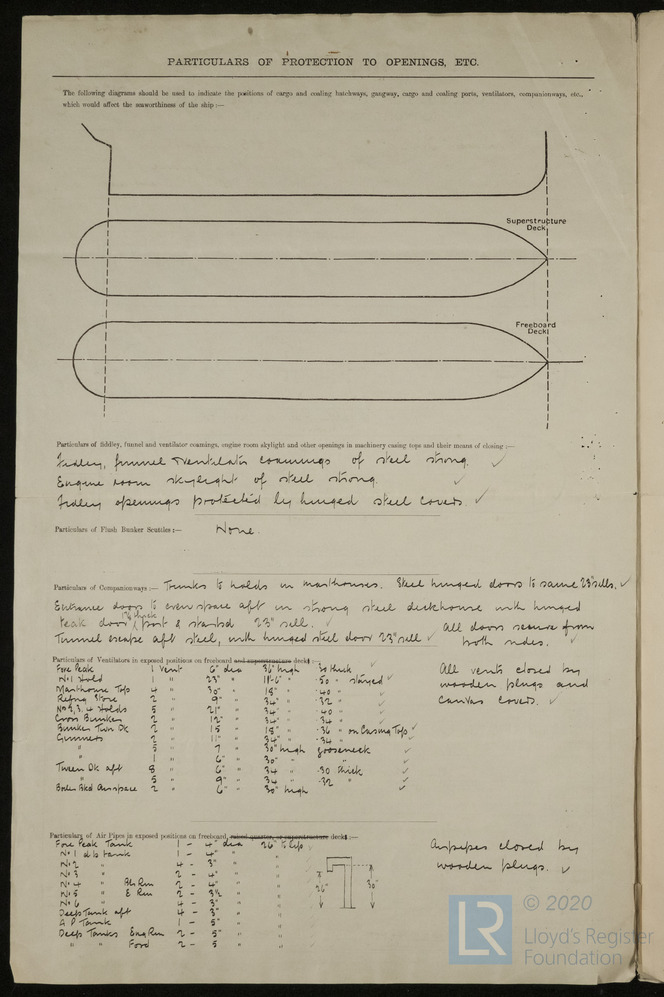 PARTICULARS OF PROTECTION TO OPENINGS, ETC.
The following diagrams should be used to indicate the positions of cargo and coaling hatchways, gangway, cargo and coaling ports, ventilators, companionways, etc.,
which would affect the seaworthiness of the ship :—
Superstructure
Deck
Freeboard
Deck
Particulars of fiddley, funnel and ventilator coamings, engine room skylight and other openings in machinery casing tops and their means of closing :—
Fidley, funnel & ventilator coamings of steel strong. ✓
Engine room skylight of steel strong. ✓
Fidley openings protected by hinged steel covers. ✓
Particulars of Flush Bunker Scuttles :— None.
Particulars of Companionways :— Trunks to holds in masthouses. Steel hinged doors to same 23" sills. ✓
Entrance doors to crew space aft in strong steel deckhouse with hinged
teak doors thick port & starbd 23" sill. ✓ All doors secure from
Tunnel escape aft steel, with hinged steel door 23" sill ✓ both sides. ✓
Particulars of Ventilators in exposed positions on freeboard and superstructure decks :—
Fore Peak 1 Vent 6" dia 36" high .30 thick ✓
No 1 Hold 1 " 23" " 11'-6" " .50 " stayed ✓
Masthouse Tops 4 " 30" " 18" " .40 " ✓
Refrig Store 2 " 9" " 34" " .32 " ✓
No 2, 3, 4 Holds 5 " 21" " 34" " .40 " ✓
Cross Bunker 2 " 12" " 34" " .34 " ✓
Bunker Twn Dk 2 " 15 " 18" " .36 " on Casing Top ✓
Gunners 2 " 11" " 34" " .34 " ✓
" 5 " 7 " 30" high gooseneck ✓
" 1 " 6" " 30" " ✓
Tween Dk aft 8 " 6" " 34 " .30 thick ✓
" 5 " 9" " 34 " .32 " ✓
2 " 6" " 30" high ✓
All vents closed by
wooden plugs and
canvas covers. ✓
Particulars of Air Pipes in exposed positions on freeboard, raised quarter, or superstructure decks :—
Fore Peak Tank 1 - 4" dia 26" to lip
No 1 db tank 1 - 4" " "
No 2 " 4 - 3" " "
No 3 " 2 - 4" " "
No 4 " Blr Rm 2 - 4" " "
No 5 " E Rm 2 - 3½ " "
No 6 " 4 - 3" " "
Deep Tank aft 4 - 3" " "
A P Tank 1 - 5" " "
Deep Tanks Eng Rm 2 - 5" " "
" " Ford 2 - 5 " "
26"
30"
Airpipes closed by
wooden plugs. ✓
LR
© 2020
Lloyd's Register
Foundation